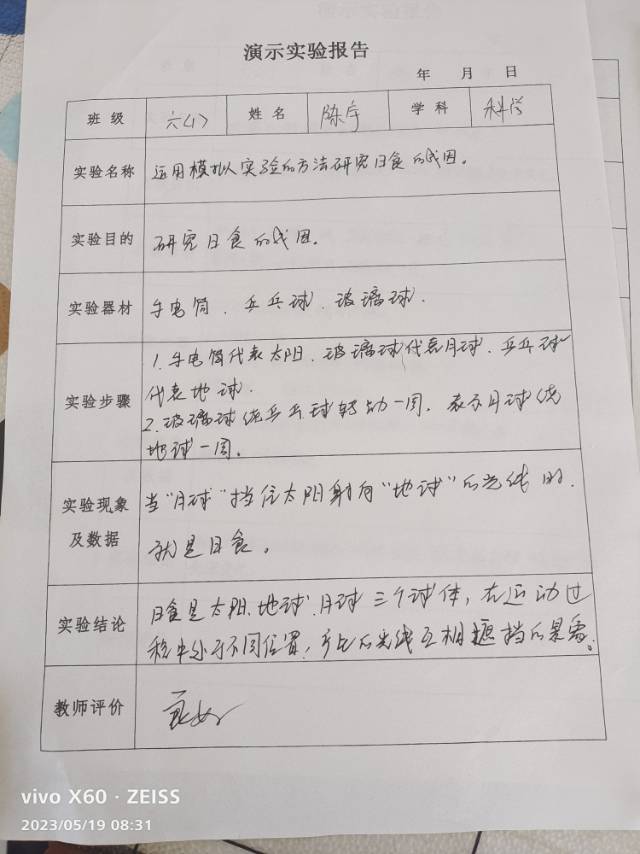 演示实验报告
年 月 日
班级 六(1) 姓名 陈宇 学科 科学
实验名称 运用模拟实验的方法研究日食的成因。
实验目的 研究日食的成因。
实验器材 手电筒、乒乓球、玻璃球.
实验步骤 1.手电筒代表太阳、玻璃球代表月球、乒乓球
代表地球.
2.玻璃球绕乒乓球转动一周,表示月球绕
地球一周。
实验现象及数据 当"月球"挡住太阳射向"地球"的光线时.
就是日食。
实验结论 日食是太阳.地球.月球三个球体,在运动过
程中处于不同位置,产生的光线互相遮挡的
教师评价 良好
vivo X60 · ZEISS
2023/05/19 08:31